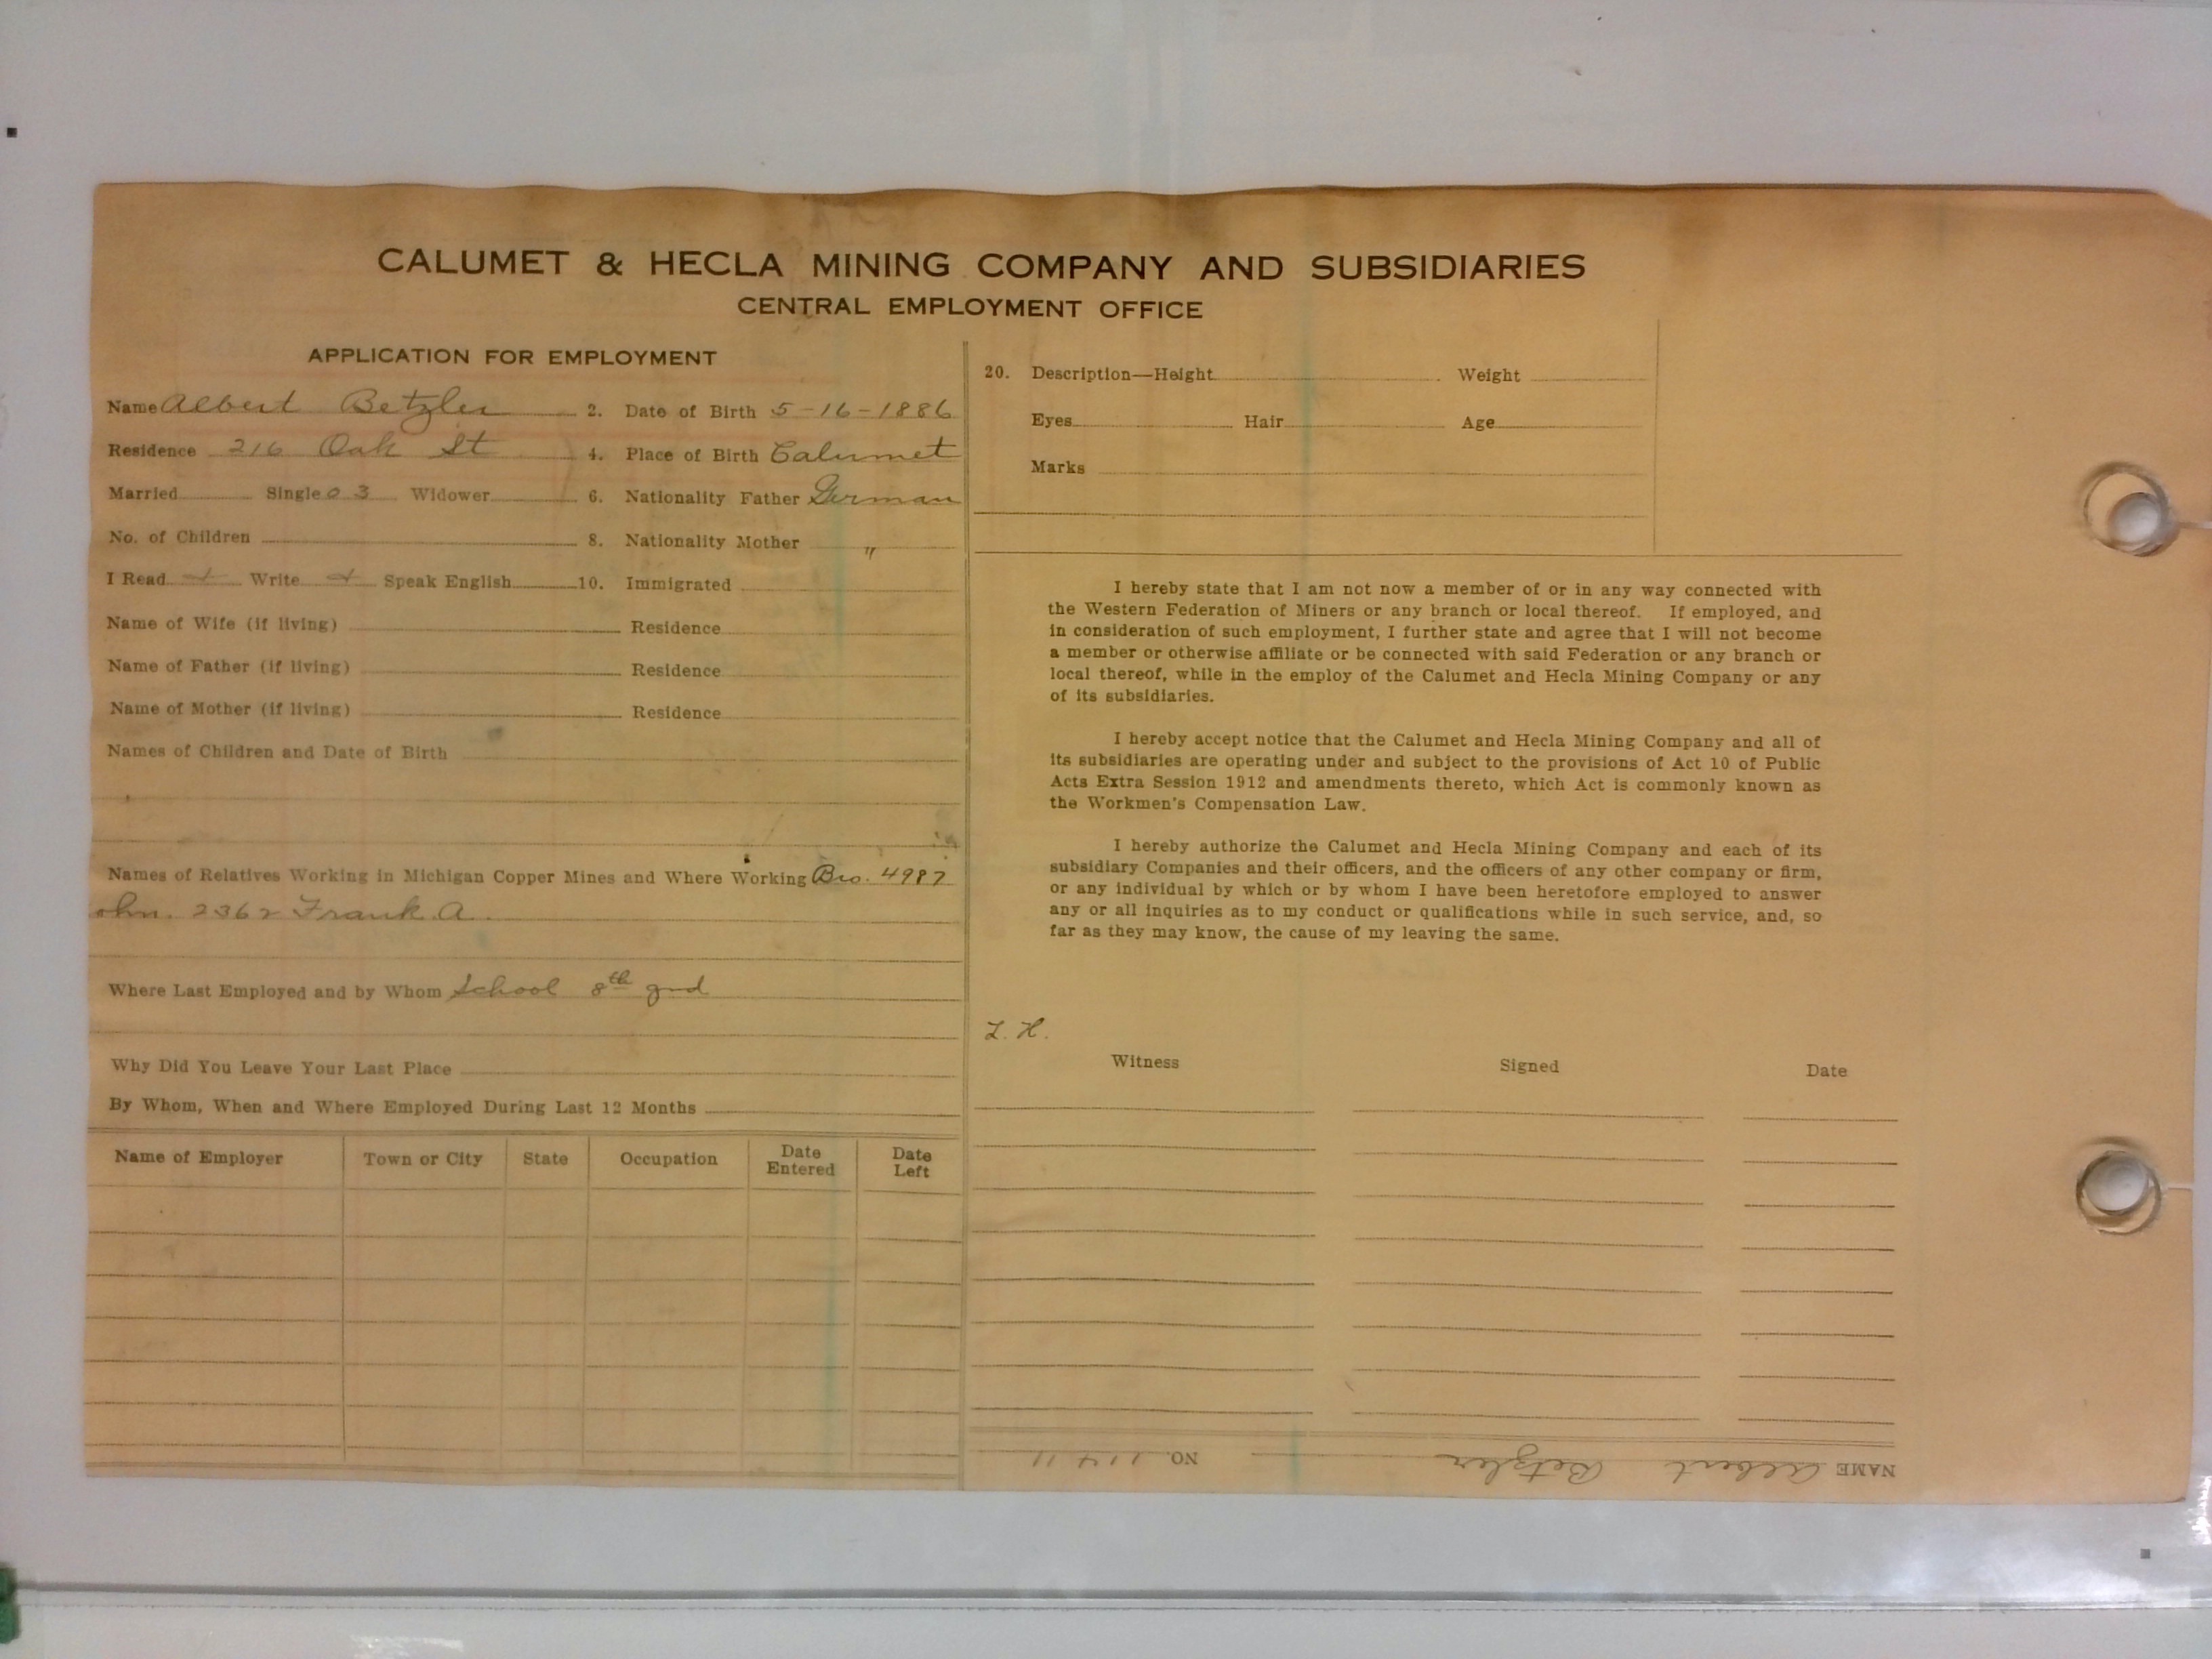 CALUMET & HECLA MINING COMPANY AND SUBSIDIARIES
CENTRAL EMPLOYMENT OFFICE
APPLICATION FOR EMPLOYMENT
Name Albert Betzler 2. Date of Birth 5-16-1886
Residence 216 Oak St 4. Place of Birth Calumet
Married Single 03 Widower 6. Nationality Father German
No. of Children 8. Nationality Mother "
I Read Write Speak English 10. Immigrated
Name of Wife (if living) Residence
Name of Father (if living) Residence
Name of Mother (if living) Residence
Names of Children and Date of Birth
Names of Relatives Working in Michigan Copper Mines and Where Working Bro. 4987
ohn. 2362 Frank A.
Where Last Employed and by Whom School 8th grd
Why Did You Leave Your Last Place
By Whom, When and Where Employed During Last 12 Months
Name of Employer Town or City State Occupation Date Entered Date Left
20. Description—Height Weight
Eyes Hair Age
Marks
I hereby state that I am not now a member of or in any way connected with
the Western Federation of Miners or any branch or local thereof. If employed, and
in consideration of such employment, I further state and agree that I will not become
a member or otherwise affiliate or be connected with said Federation or any branch or
local thereof, while in the employ of the Calumet and Hecla Mining Company or any
of its subsidiaries.
I hereby accept notice that the Calumet and Hecla Mining Company and all of
its subsidiaries are operating under and subject to the provisions of Act 10 of Public
Acts Extra Session 1912 and amendments thereto, which Act is commonly known as
the Workmen's Compensation Law.
I hereby authorize the Calumet and Hecla Mining Company and each of its
subsidiary Companies and their officers, and the officers of any other company or firm,
or any individual by which or by whom I have been heretofore employed to answer
any or all inquiries as to my conduct or qualifications while in such service, and, so
far as they may know, the cause of my leaving the same.
L. H.
Witness Signed Date
NAME Albert Betzler NO. 11411